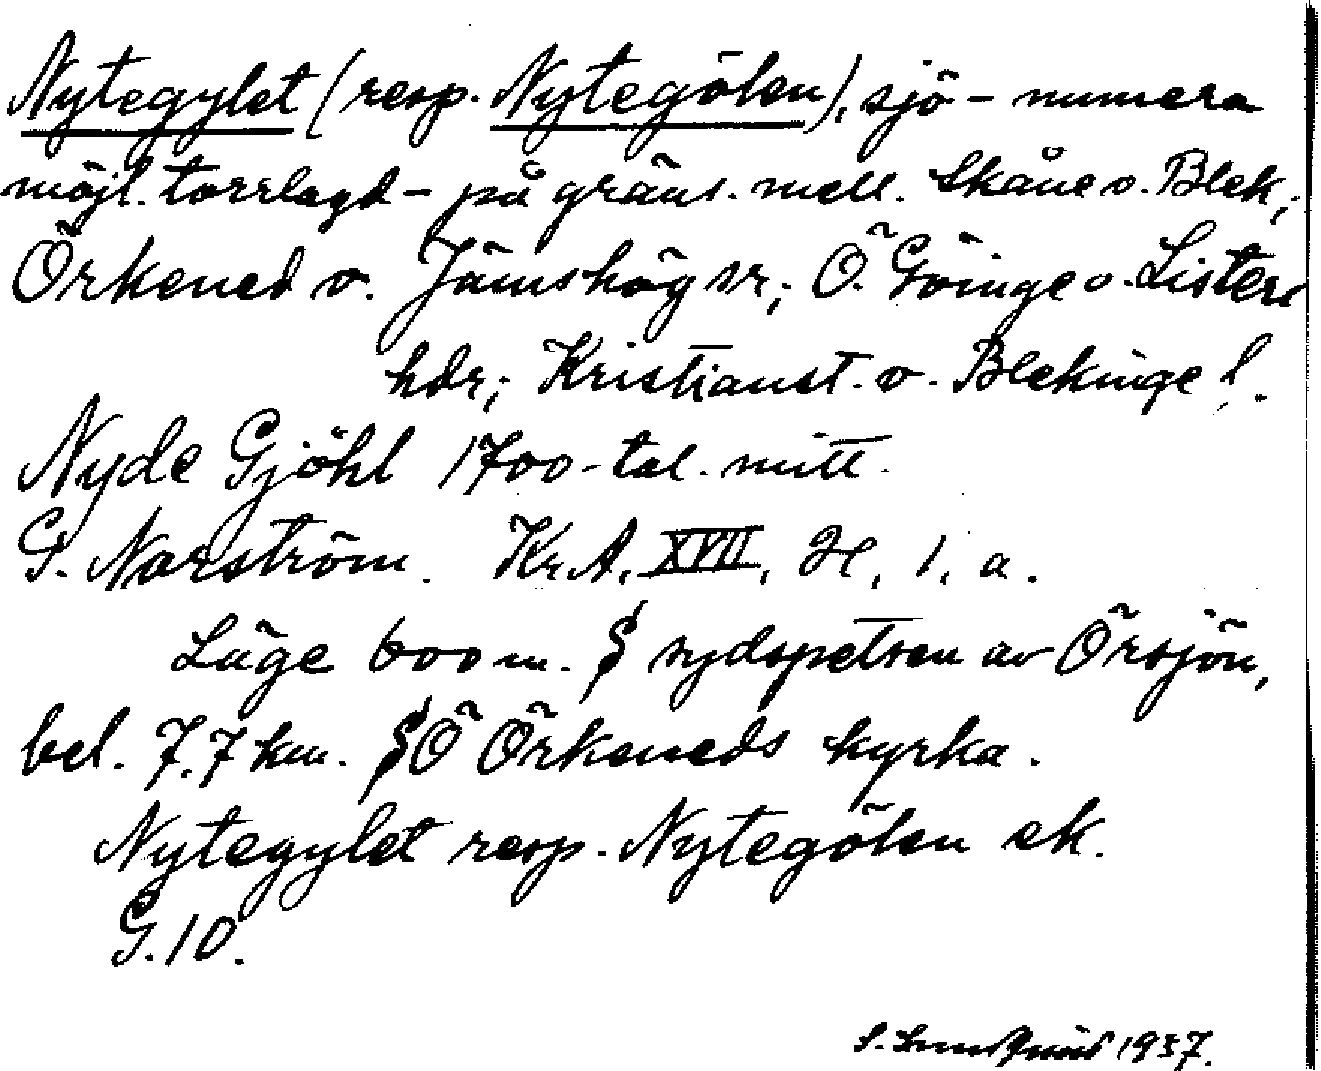 Nytegylet (resp. Nytegölen), sjö - numera
möjl. torrlagd - på gräns. mell. Skåne o. Blek.;
Örkened o. Jämshög sr; Ö. Göinge o. Listers
hdr; Kristianst. o. Blekinge l.
Nyde Gjöhl 1700-tal. mitt.
G. Narström. Kr.A. XVII, H, 1, a.
Läge 600 m. S sydspetsen av Örsjön,
bel. 7.7 km. SÖ Örkeneds kyrka.
Nytegylet resp. Nytegölen ek.
G.10.
1937.